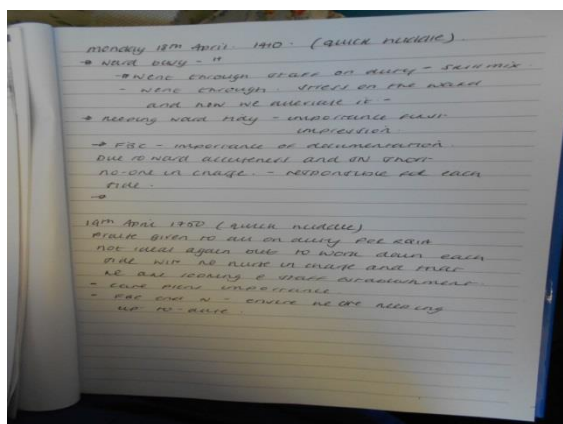 monday 18th April. 1410. (quick huddle).
→ ward busy - "
→ went through staff on duty - skill mix.
- went through stress on the ward
and how we alleviate it -
→ keeping ward tidy - importance first
impression.
→ FBC - importance of documentation.
Due to ward accuteness and SN short
no-one in charge. - responsible for each
side.
→
19th April 1750 (quick huddle)
Praise given to all on duty for
not ideal again but to work down each
side with no nurse in charge and that
we are looking @ staff establishment.
- care plans importance
- FBC and - ensure we are keeping
up-to-date.